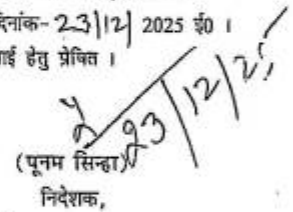 दिनांक- 23|12| 2025 ई0 ।
ाई हेतु प्रेषित ।
23/12/25
(पूनम सिन्हा)
निदेशक,